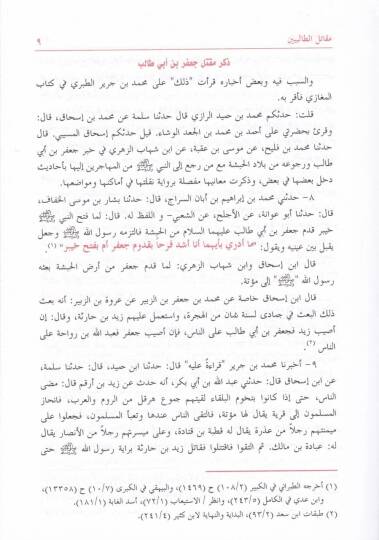 مقاتل الطالبيين
٩
ذكر مقتل جعفر بن أبي طالب
والسبب فيه وبعض أخباره قرأت "ذلك" على محمد بن جرير الطبري في كتاب
المغازي فأقر به.
قلت: حدثكم محمد بن حميد الرازي قال حدثنا سلمة عن محمد بن إسحاق، قال:
وقرئ بحضرتي على أحمد بن محمد بن الجعد الوشاء، قيل حدثكم إسحاق المسيبي. قال
حدثنا محمد بن فليح، عن موسى بن عقبة، عن ابن شهاب الزهري في خبر جعفر بن أبي
طالب ورجوعه من بلاد الحبشة مع من رجع إلى النبي ﷺ من المهاجرين إليها بأحاديث
دخل بعضها في بعض، وذكرت معانيها مفصلة برواية نقلتها في أماكنها ومواضعها.
٨- حدثني محمد بن إبراهيم بن أبان السراج، قال: حدثنا بشار بن موسى الخفاف،
قال: حدثنا أبو عوانة، عن الأجلح، عن الشعبي- و اللفظ له. قال: لما فتح النبي ﷺ
خيبر قدم جعفر بن أبي طالب عليهما السلام من الحبشة فالتزمه رسول الله ﷺ وجعل
يقبل بين عينيه ويقول: "ما أدري بأيهما أنا أشد فرحاً بقدوم جعفر أم بفتح خيبر" (١).
قال ابن إسحاق وابن شهاب الزهري: لما قدم جعفر من أرض الحبشة بعثه
رسول الله "ﷺ" إلى مؤتة.
قال ابن إسحاق خاصة عن محمد بن جعفر بن الزبير عن عروة بن الزبير: أنه بعث
ذلك البعث في جمادى لسنة ثمان من الهجرة، واستعمل عليهم زيد بن حارثة، وقال: إن
أصيب زيد فجعفر بن أبي طالب على الناس، فإن أصيب جعفر فعبد الله بن رواحة على
الناس (٢).
٩- أخبرنا محمد بن جرير "قراءةً عليه" قال: حدثنا ابن حميد، قال: حدثنا سلمة،
عن ابن إسحاق قال: حدثني عبد الله بن أبي بكر، أنه حدث عن زيد بن أرقم قال: مضى
الناس، حتى إذا كانوا بتخوم البلقاء لقيتهم جموع هرقل من الروم والعرب، فانحاز
المسلمون إلى قرية يقال لها مؤتة، فالتقى الناس عندها وتعبأ المسلمون، فجعلوا على
ميمنتهم رجلاً من عذرة يقال له قطبة بن قتادة، وعلى ميسرتهم رجلاً من الأنصار يقال
له: عبادة بن مالك. ثم التقوا فاقتتلوا فقاتل زيد بن حارثة براية رسول الله ﷺ حتى
(١) أخرجه الطبراني في الكبير (١٠٨/٢) ح (١٤٦٩)، والبيهقي في الكبرى (١٠/٧) ح (١٣٣٥٨)،
وابن عدي في الكامل (٢٤٣/٥)، وانظر / الاستيعاب (٧٢/١)، أسد الغابة (١٨١/١).
(٢) طبقات ابن سعد (٩٣/٢)، البداية والنهاية لابن كثير (٢٤١/٤).